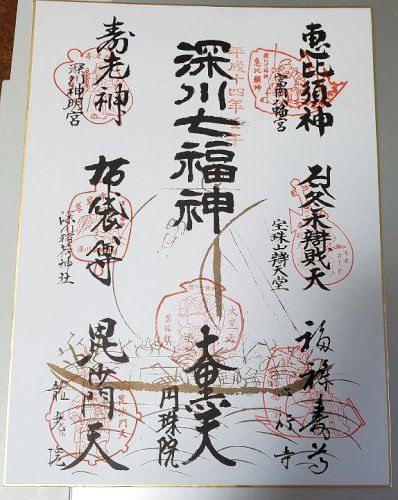 恵比須神
富岡八幡宮
冬木辯財天
宝珠山辨天堂
福禄寿尊
心行寺
平成十四年
深川七福神
大黒天
円珠院
寿老神
深川神明宮
布袋尊
深川稲荷神社
毘沙門天
龍光院